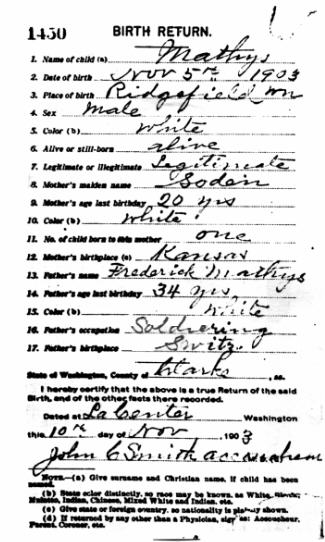 1450 BIRTH RETURN.
1. Name of child (a) Mathys
2. Date of birth Nov 5th 1903
3. Place of birth Ridgefield Wn
4. Sex Male
5. Color (b) White
6. Alive or still-born alive
7. Legitimate or illegitimate Legitimate
8. Mother's maiden name Soden
9. Mother's age last birthday 20 yrs
10. Color (b) White
11. No. of child born to this mother one
12. Mother's birthplace (c) Kansas
13. Father's name Frederick Mathys
14. Father's age last birthday 34 yrs,
15. Color (b) White
16. Father's occupation Soldiering
17. Father's birthplace Switz.
State of Washington, County of Clarke, ss.
I hereby certify that the above is a true Return of the said
Birth, and of the other facts there recorded.
Dated at La Center Washington
this 10th day of Nov 1903
John C Smith
NOTE.—(a) Give surname and Christian name, if child has been
named.
(b) State color distinctly, so race may be known, as White, Black,
Mulatto, Indian, Chinese, Mixed White and Indian, etc.
(c) Give state or foreign country, so nationality is plainly shown.
(d) If returned by any other than a Physician, sign as Accoucheur,
Parent, Coroner, etc.